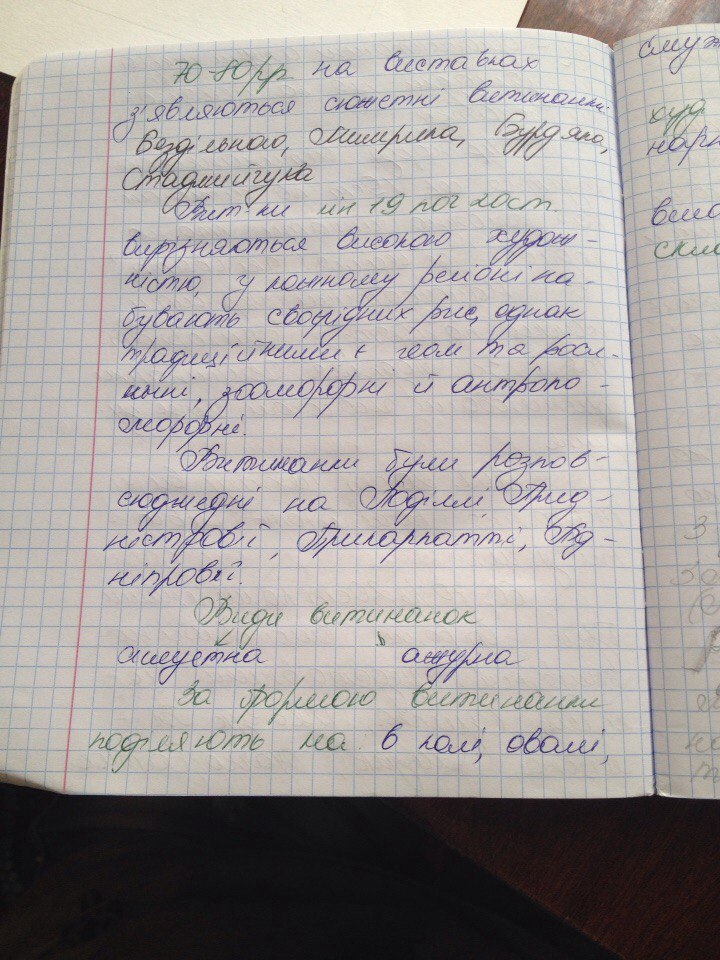 70-80рр на виставках
з'являються сюжетні витинанки
Бездільного,
Вит-ки кін 19 поч 20 ст.
вирізняються високою худож-
ністю, у кожному регіоні на-
бувають своєрідних рис, однак
традиційними є геом та росл-
нині, зооморфні й антропо-
морфні.
Витинанки були розпов-
сюджені на Поділлі, Прид-
ністров'ї, Прикарпатті, Під-
ніпров'ї.
Види витинанок
силуетна ажурна
За формою витинанки
поділяють на: в колі, овалі,
служ
худ
нари